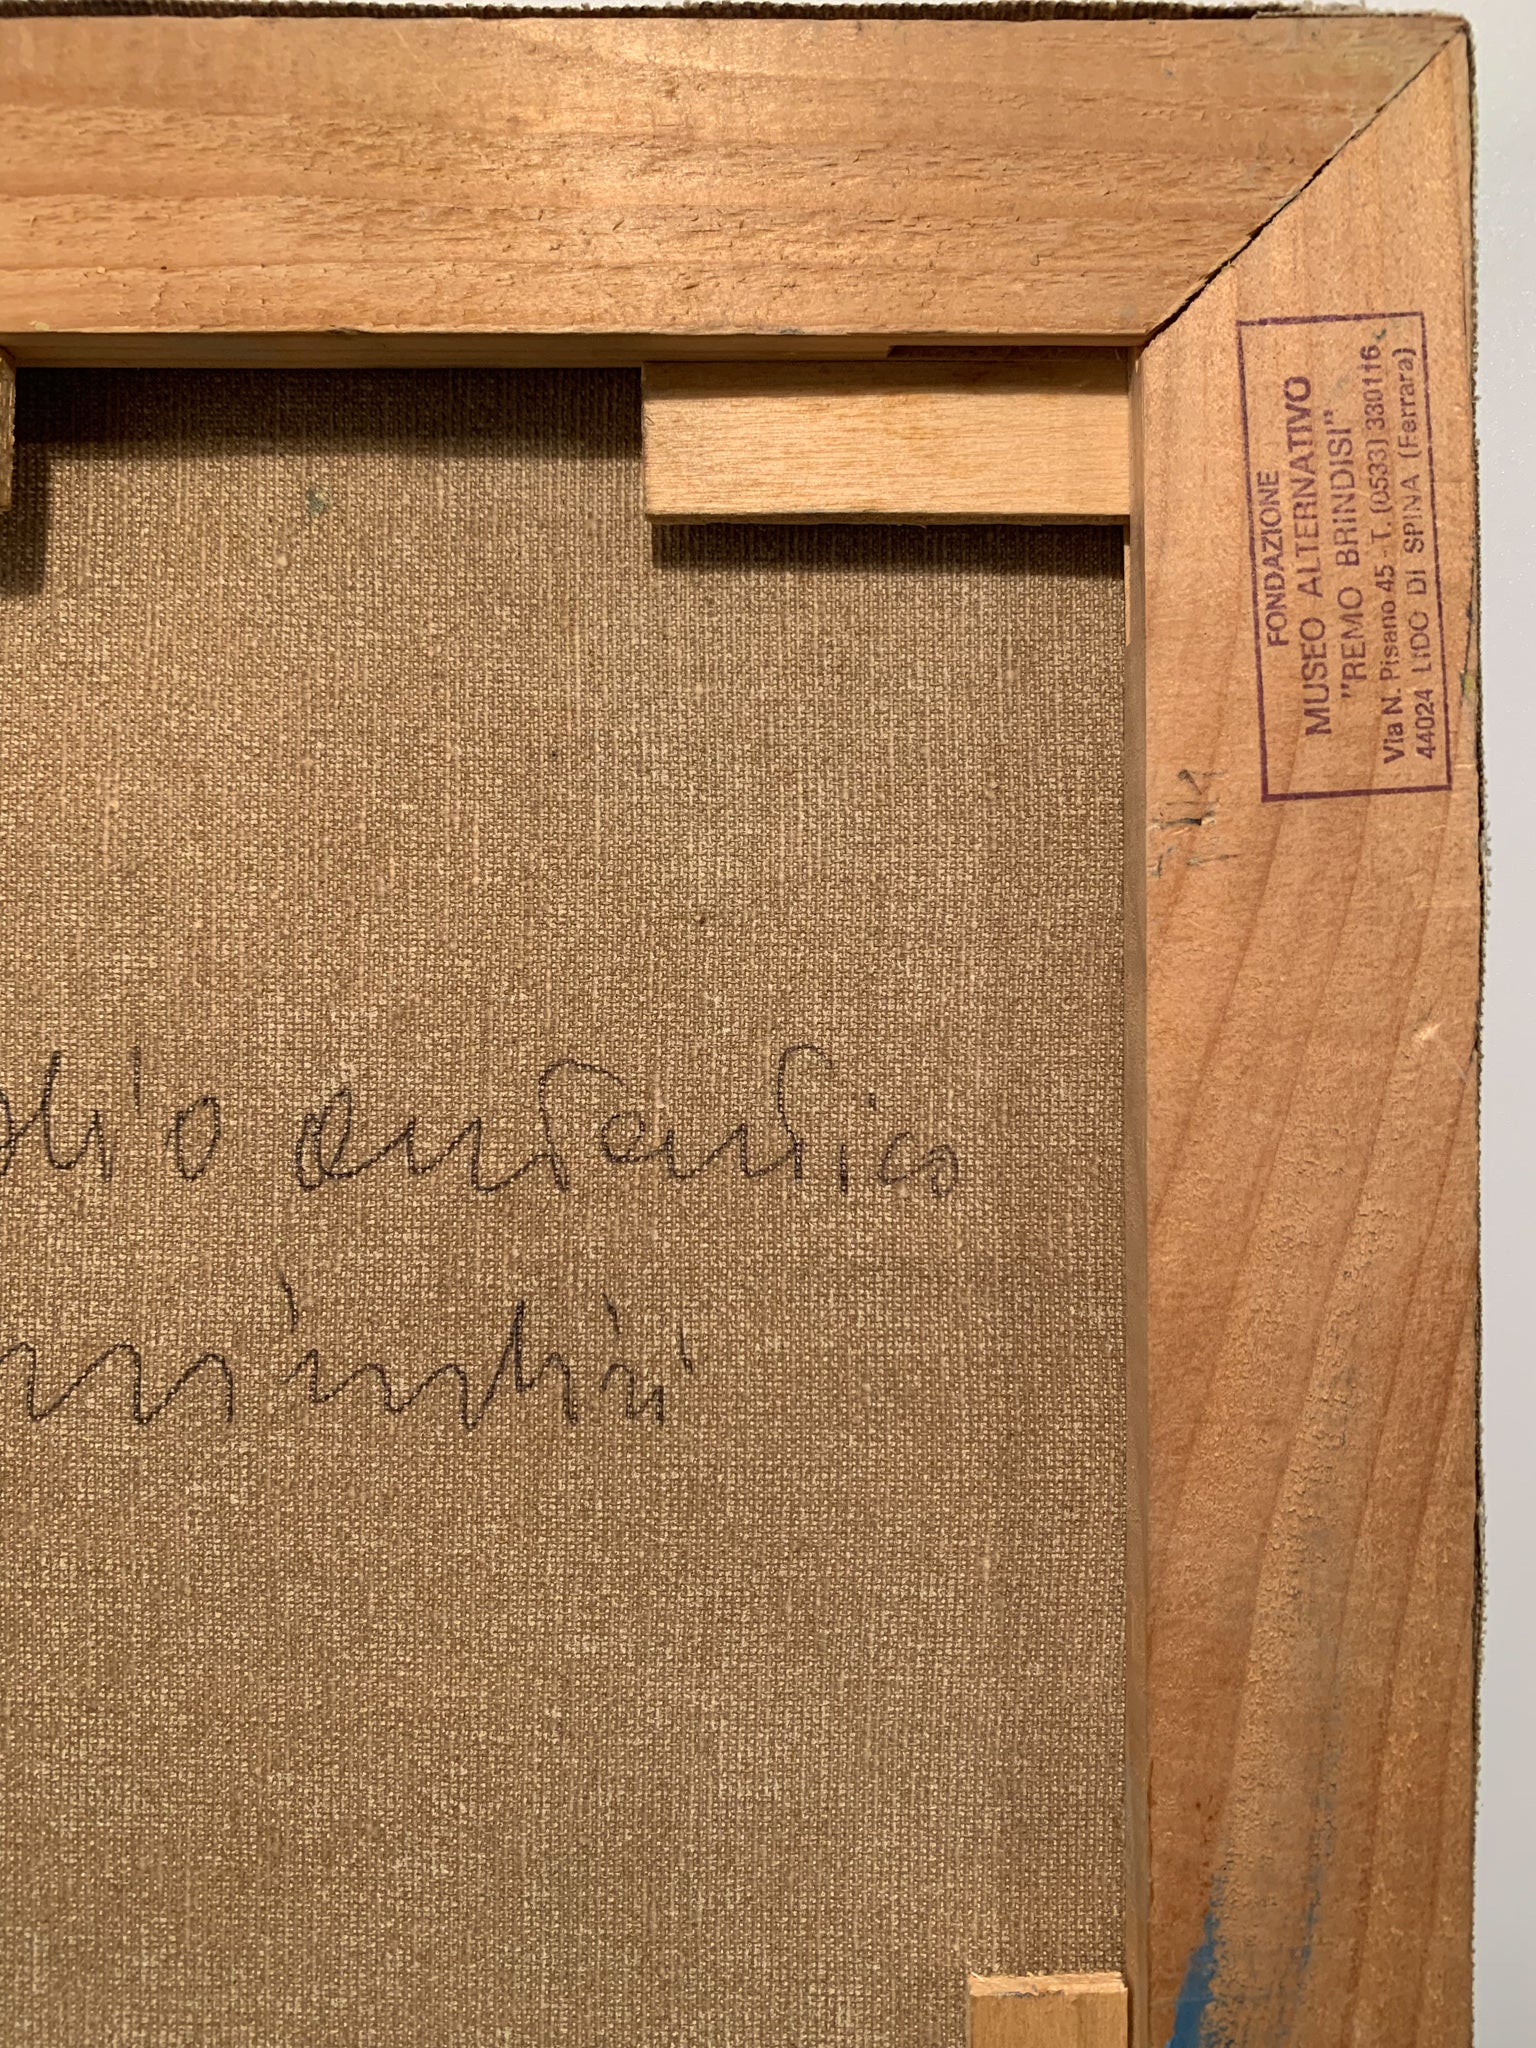 FONDAZIONE
MUSEO ALTERNATIVO
"REMO BRINDISI"
Via N. Pisano 45 - T. (0533) 330116
44024 LIDO DI SPINA (Ferrara)
autentico